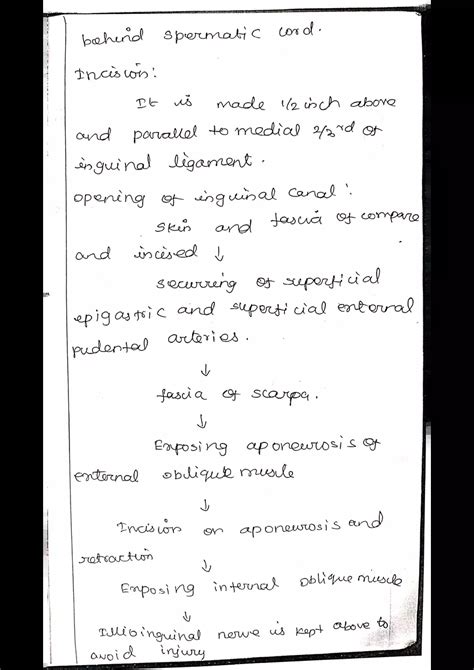 behind spermatic cord.
Incision:
It is made 1/2 inch above
and parallel to medial 2/3rd of
inguinal ligament.
opening of inguinal canal:
skin and fascia of compare
and incised ↓
securring of superficial
epigastric and superficial enternal
pudental arteries.
↓
fascia of scarpa.
↓
Exposing aponeurosis of
enternal oblique muscle
↓
Incision on aponeurosis and
retraction
↓
Exposing internal oblique muscle
↓
Illioinguinal nerve is kept above to
avoid injury